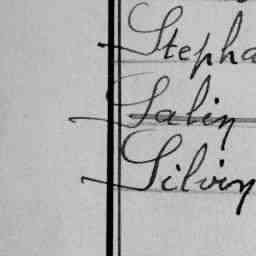 Stepha
Salin
Silvin